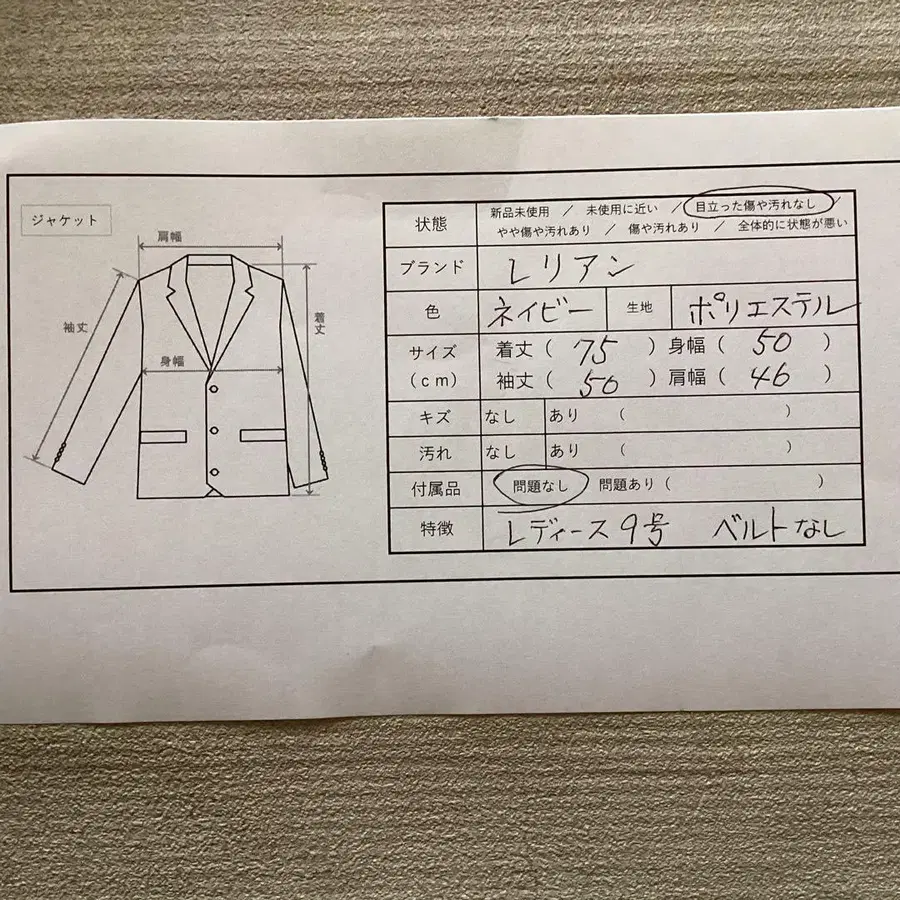 ジャケット
肩幅
袖丈
着丈
身幅
状態 新品未使用 / 未使用に近い / 目立った傷や汚れなし /
やや傷や汚れあり / 傷や汚れあり / 全体的に状態が悪い
ブランド レリアン
色 ネイビー 生地 ポリエステル
サイズ(cm) 着丈( 75 )身幅( 50 )
袖丈( 50 )肩幅( 46 )
キズ なし あり ( )
汚れ なし あり ( )
付属品 問題なし 問題あり( )
特徴 レディース9号 ベルトなし